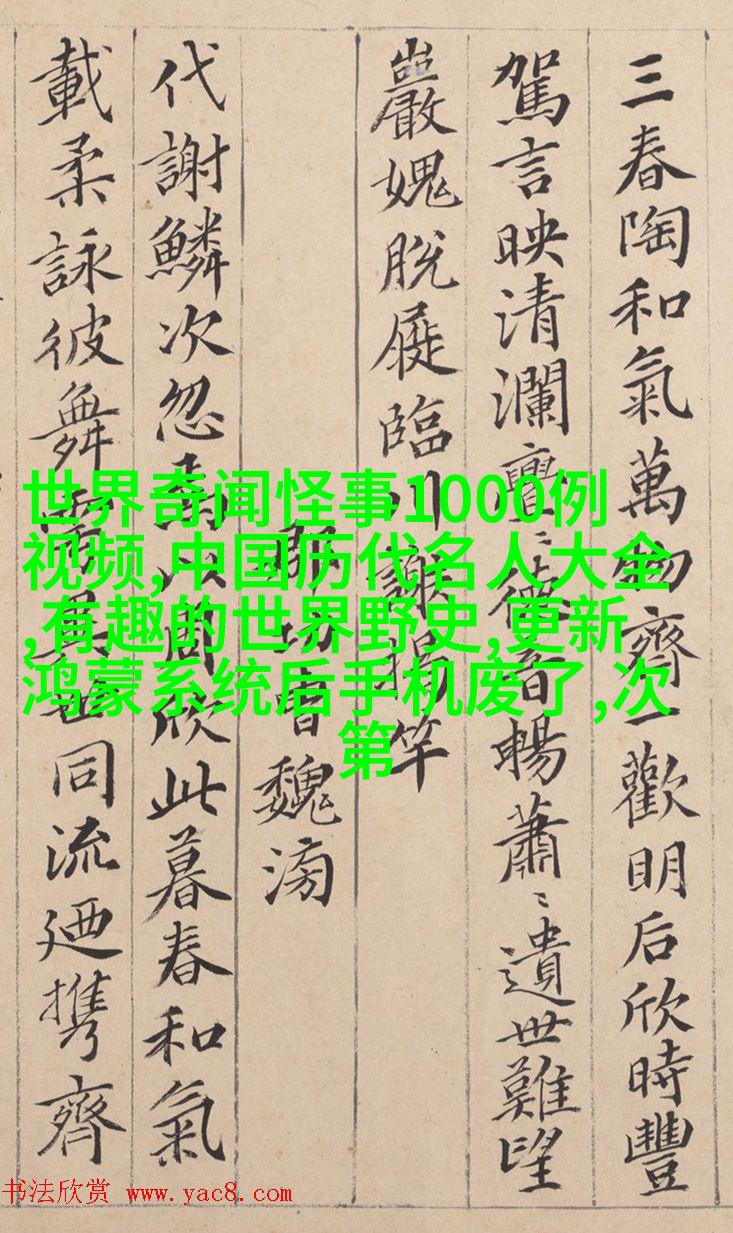 三春陶和氣萬物齊一歡明后欣時豐
駕言映清瀾亹〻德音暢蕭〻遺世難望
巖愧脫屣臨川謝揭竿
郡功曹魏滂
代謝鱗次忽焉以周欣此暮春和氣
載柔詠彼舞雩異世同流廼携齊
世界奇闻怪事1000例
视频,中国历代名人大全
,有趣的世界野史,更新
鸿蒙系统后手机废了,次
第
书法欣赏 www.yac8.com